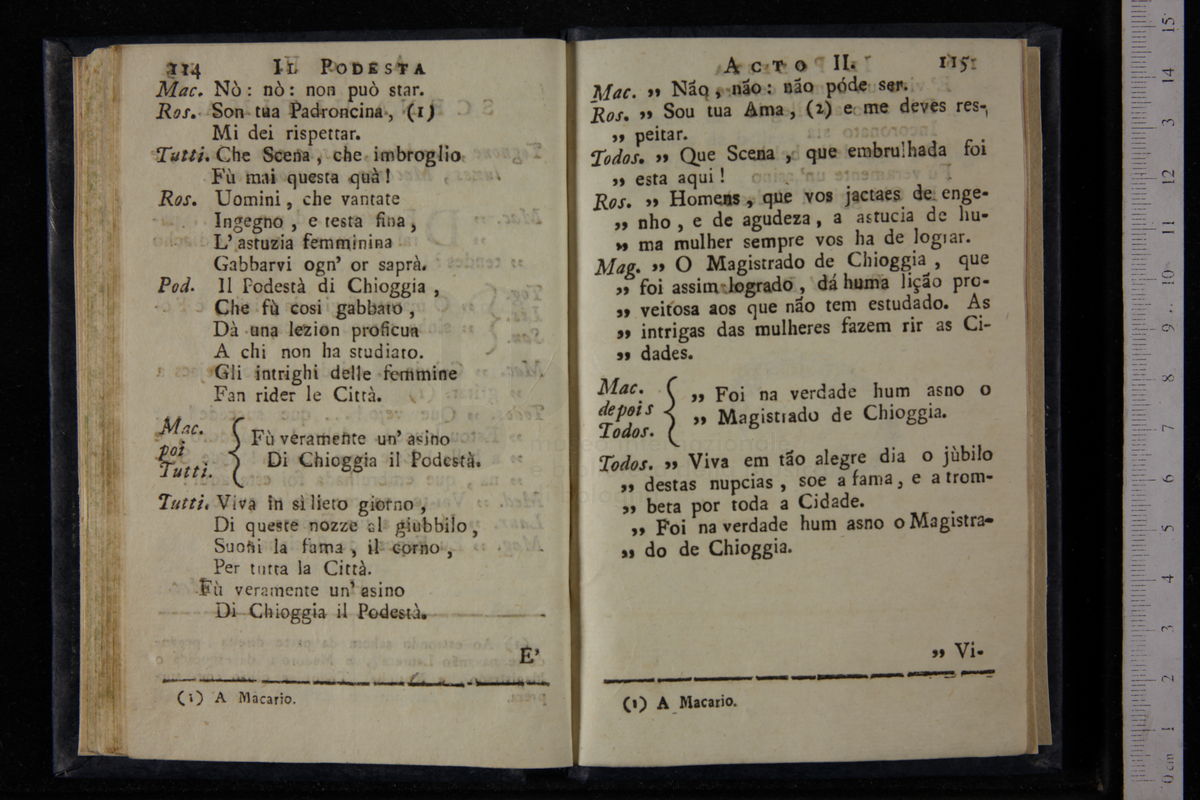 114 IL PODESTA
Mac. Nò : nò : non può star.
Ros. Son tua Padroncina, (1)
Mi dei rispettar.
Tutti. Che Scena, che imbroglio
Fù mai questa quà!
Ros. Uomini, che vantate
Ingegno, e testa fina,
L' astuzia femminina
Gabbarvi ogn' or saprà.
Pod. Il Podestà di Chioggia,
Che fù cosi gabbato,
Dà una lezion proficua
A chi non ha studiato.
Gli intrighi delle femmine
Fan rider le Città.
Mac. poi Tutti. { Fù veramente un' asino
Di Chioggia il Podestà.
Tutti. Viva in sì lieto giorno,
Di queste nozze al giubbilo,
Suoni la fama, il corno,
Per tutta la Città.
Fù veramente un' asino
Di Chioggia il Podestà.
E'
(1) A Macario.
ACTO II. 115
Mac. ,, Não, não : não póde ser.
Ros. ,, Sou tua Ama, (2) e me deves res-
,, peitar.
Todos. ,, Que Scena, que embrulhada foi
,, esta aqui !
Ros. ,, Homens, que vos jactaes de enge-
,, nho, e de agudeza, a astucia de hu-
,, ma mulher sempre vos ha de lograr.
Mag. ,, O Magistrado de Chioggia, que
,, foi assim logrado, dá huma lição pro-
,, veitosa aos que não tem estudado. As
,, intrigas das mulheres fazem rir as Ci-
,, dades.
Mac. depois Todos. { ,, Foi na verdade hum asno o
,, Magistrado de Chioggia.
Todos. ,, Viva em tão alegre dia o jùbilo
,, destas nupcias, soe a fama, e a trom-
,, beta por toda a Cidade.
,, Foi na verdade hum asno o Magistra-
,, do de Chioggia.
,, Vi-
(1) A Macario.
0 cm 1 2 3 4 5 6 7 8 9 10 11 12 13 14 15